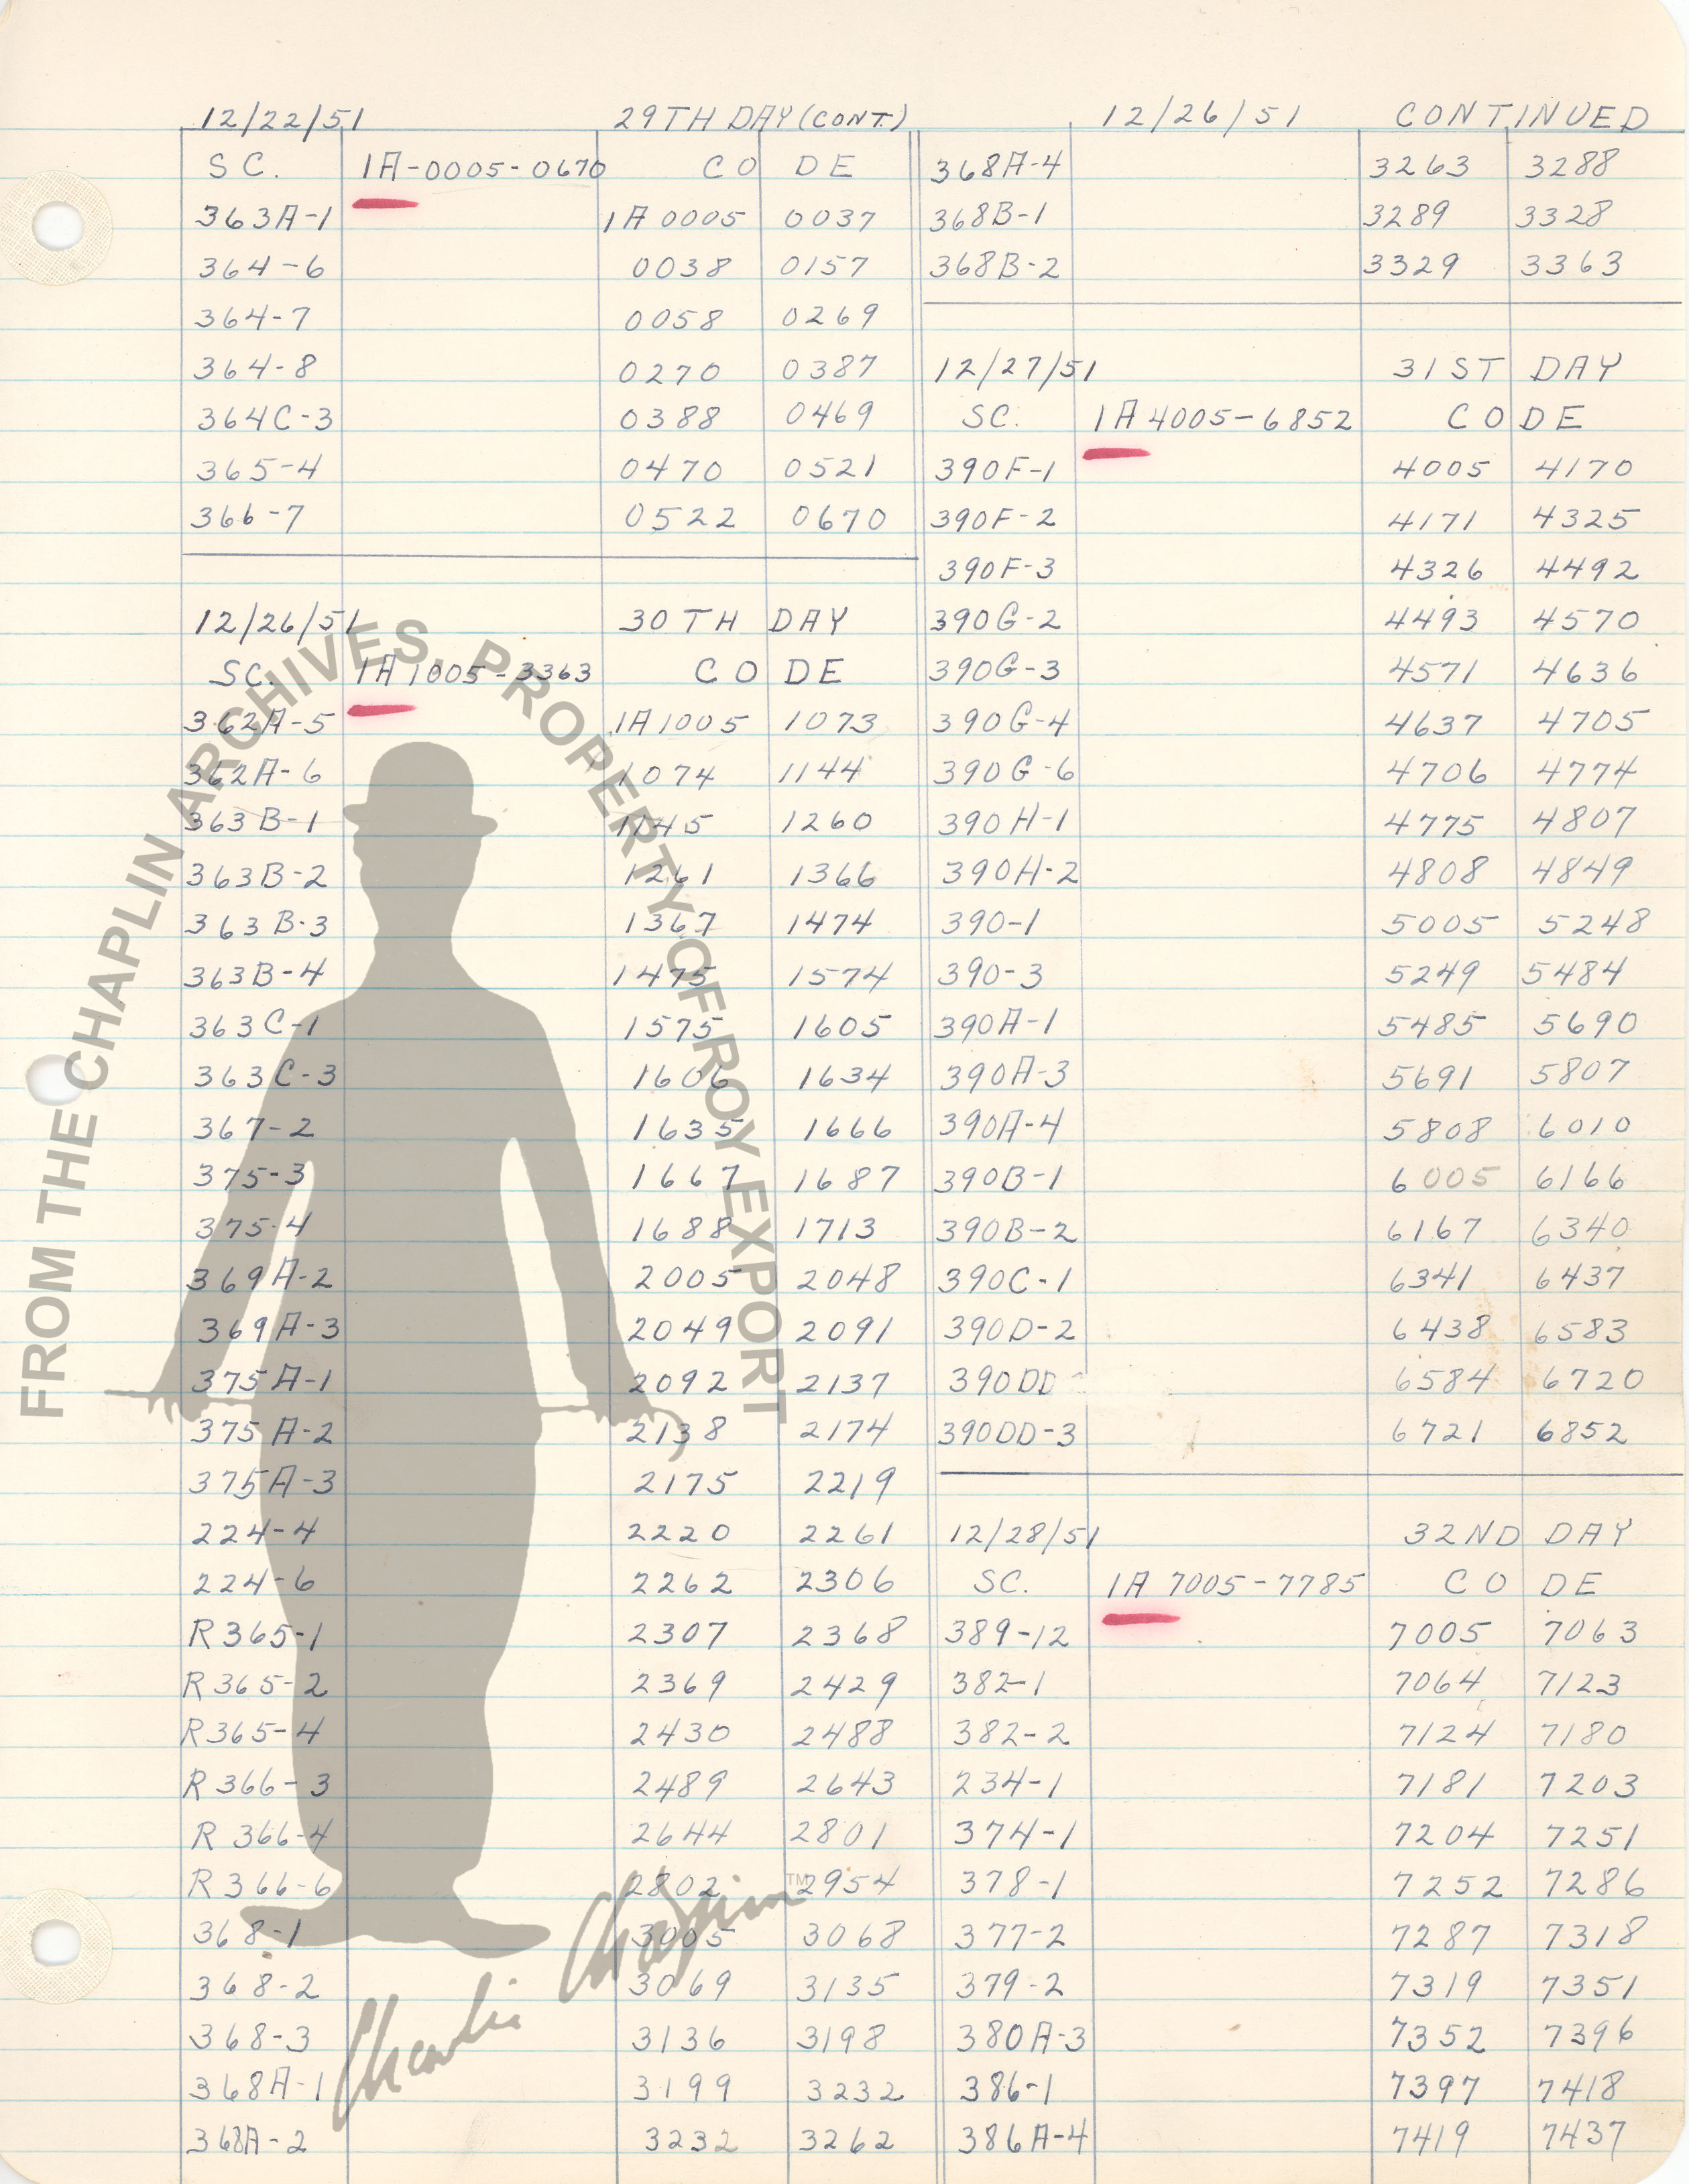 12/22/51 29TH DAY (CONT.)
SC. 1A-0005-0670 CODE
363A-1 1A 0005 0037
364-6 0038 0157
364-7 0058 0269
364-8 0270 0387
364C-3 0388 0469
365-4 0470 0521
366-7 0522 0670
12/26/51 30TH DAY
SC. 1A 1005-3363 CODE
362A-5 1A 1005 1073
362A-6 1074 1144
363B-1 1145 1260
363B-2 1261 1366
363B-3 1367 1474
363B-4 1475 1574
363C-1 1575 1605
363C-3 1606 1634
367-2 1635 1666
375-3 1667 1687
375-4 1688 1713
369A-2 2005 2048
369A-3 2049 2091
375A-1 2092 2137
375A-2 2138 2174
375A-3 2175 2219
224-4 2220 2261
224-6 2262 2306
R365-1 2307 2368
R365-2 2369 2429
R365-4 2430 2488
R366-3 2489 2643
R366-4 2644 2801
R366-6 2802 2954
368-1 3005 3068
368-2 3069 3135
368-3 3136 3198
368A-1 3199 3232
368A-2 3232 3262
12/26/51 CONTINUED
368A-4 3263 3288
368B-1 3289 3328
368B-2 3329 3363
12/27/51 31ST DAY
SC. 1A 4005-6852 CODE
390F-1 4005 4170
390F-2 4171 4325
390F-3 4326 4492
390G-2 4493 4570
390G-3 4571 4636
390G-4 4637 4705
390G-6 4706 4774
390H-1 4775 4807
390H-2 4808 4849
390-1 5005 5248
390-3 5249 5484
390A-1 5485 5690
390A-3 5691 5807
390A-4 5808 6010
390B-1 6005 6166
390B-2 6167 6340
390C-1 6341 6437
390D-2 6438 6583
390DD- 6584 6720
390DD-3 6721 6852
12/28/51 32ND DAY
SC. 1A 7005-7785 CODE
389-12 7005 7063
382-1 7064 7123
382-2 7124 7180
234-1 7181 7203
374-1 7204 7251
378-1 7252 7286
377-2 7287 7318
379-2 7319 7351
380A-3 7352 7396
386-1 7397 7418
386A-4 7419 7437
FROM THE CHAPLIN ARCHIVES, PROPERTY OF ROY EXPORT
Charlie Chaplin TM